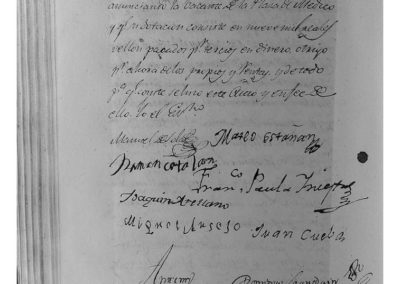 anunciando la Vacante de la Plaza de Medico
y su dotación consiste en nueve mil reales
vellon pagados pr. tercios en dinero, o trigo
pr. ahora de los propios y Rentas, y de todo
pa. qe. conste se libro este Oficio y en fee de
ello Yo el Essno
Manuel Mateo Estañan
Ramon Catalan
Franco. Paula Iniesta
Joaquin Arellano
Miguel Juan Cueba